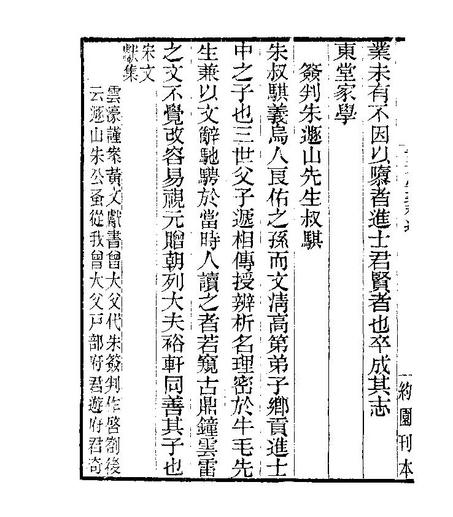 業未有不因以隳者進士君賢者也卒成其志
東堂家學
簽判朱遯山先生叔騏
朱叔騏義烏人良佑之孫而文清高第弟子鄉貢進士
中之子也三世父子遞相傳授辨析名理密於牛毛先
生兼以文辭馳騁於當時人讀之者若窺古鼎鐘雲雷
之文不覺改容易視元贈朝列大夫裕軒同善其子也
宋文
獻集
雲濠謹案黃文獻書曾大父代朱簽判作啓劄後
云遯山朱公蚤從我曾大父戶部府君遊府君奇
約園刊本